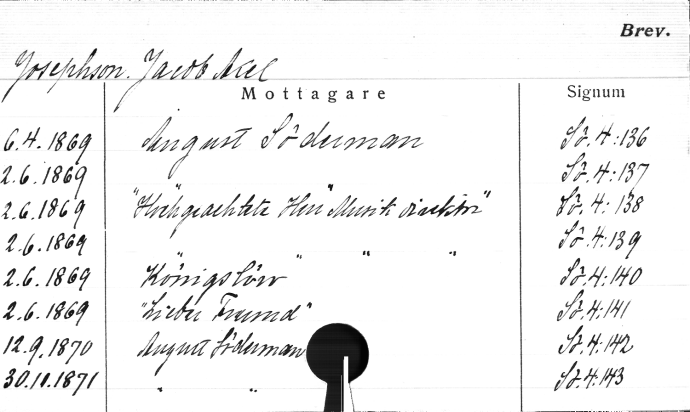 Brev.
Josephson. Jacob Axel
Mottagare Signum
6.4.1869 August Söderman Sö. 4:136
2.6.1869 Sö. 4:137
2.6.1869 "Hochgeachtete Herr Musik direktör" Sö. 4:138
2.6.1869 " " " " Sö. 4:139
2.6.1869 Königslöw Sö. 4:140
2.6.1869 "Lieber Freund" Sö. 4:141
12.9.1870 August Söderman Sö. 4:142
30.11.1871 " " Sö. 4:143